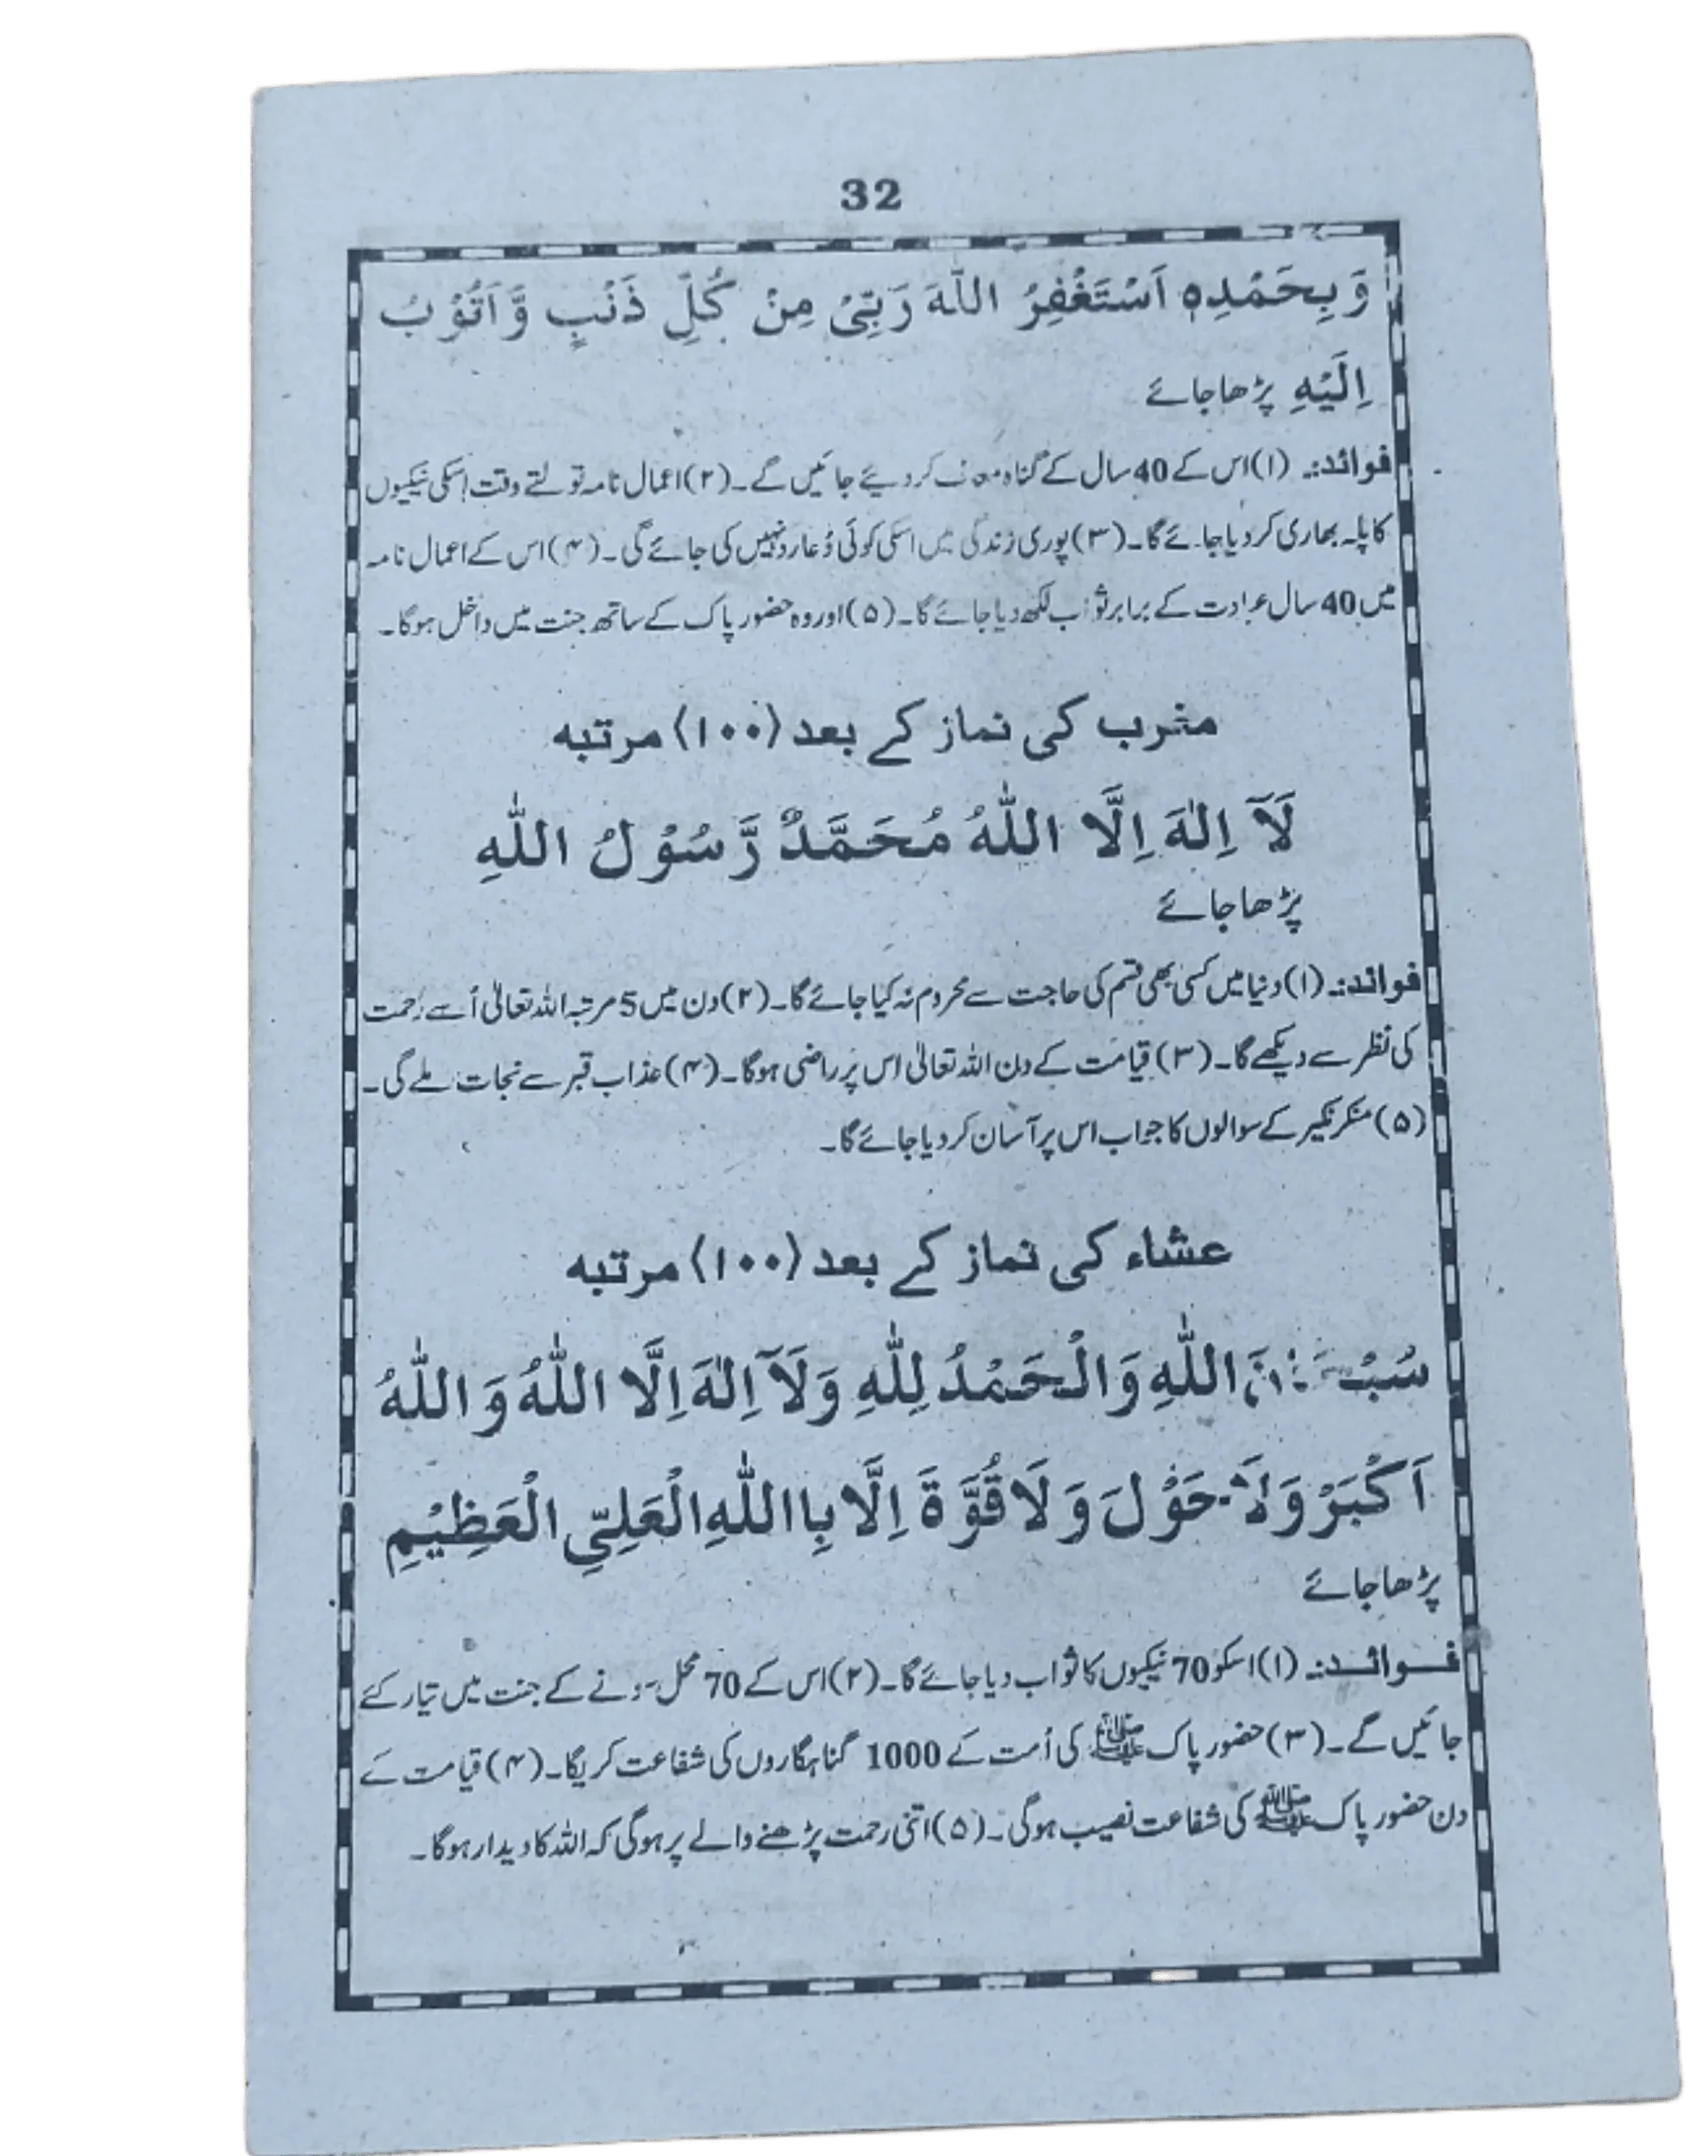 32
وَبِحَمْدِهٖ اَسْتَغْفِرُ اللّٰهَ رَبِّىْ مِنْ كُلِّ ذَنْبٍ وَّاَتُوْبُ
اِلَيْهِ پڑھا جائے
فوائد:۔ (۱) اس کے 40 سال کے گناہ معاف کر دیئے جائیں گے۔ (۲) اعمال نامہ تولتے وقت اسکی نیکیوں
کا پلہ بھاری کر دیا جائے گا۔ (۳) پوری زندگی میں اسکی کوئی دُعا رد نہیں کی جائے گی۔ (۴) اس کے اعمال نامہ
میں 40 سال عبادت کے برابر ثواب لکھ دیا جائے گا۔ (۵) اور وہ حضور پاک کے ساتھ جنت میں داخل ہوگا۔
مغرب کی نماز کے بعد (۱۰۰) مرتبہ
لَآ اِلٰهَ اِلَّا اللّٰهُ مُحَمَّدٌ رَّسُوْلُ اللّٰهِ
پڑھا جائے
فوائد:۔ (۱) دنیا میں کسی بھی قسم کی حاجت سے محروم نہ کیا جائے گا۔ (۲) دن میں 5 مرتبہ اللہ تعالیٰ اُسے رحمت
کی نظر سے دیکھے گا۔ (۳) قیامت کے دن اللہ تعالیٰ اس پر راضی ہوگا۔ (۴) عذاب قبر سے نجات ملے گی۔
(۵) منکر نکیر کے سوالوں کا جواب اس پر آسان کر دیا جائے گا۔
عشاء کی نماز کے بعد (۱۰۰) مرتبہ
سُبْحَانَ اللّٰهِ وَالْحَمْدُ لِلّٰهِ وَلَآ اِلٰهَ اِلَّا اللّٰهُ وَاللّٰهُ
اَكْبَرْ وَلَا حَوْلَ وَلَا قُوَّةَ اِلَّا بِااللّٰهِ الْعَلِىِّ الْعَظِيْمِ
پڑھا جائے
فوائد:۔ (۱) اسکو 70 نیکیوں کا ثواب دیا جائے گا۔ (۲) اس کے 70 محل سونے کے جنت میں تیار کئے
جائیں گے۔ (۳) حضور پاک ﷺ کی اُمت کے 1000 گناہگاروں کی شفاعت کریگا۔ (۴) قیامت کے
دن حضور پاک ﷺ کی شفاعت نصیب ہوگی۔ (۵) اتنی رحمت پڑھنے والے پر ہوگی کہ اللہ کا دیدار ہوگا۔